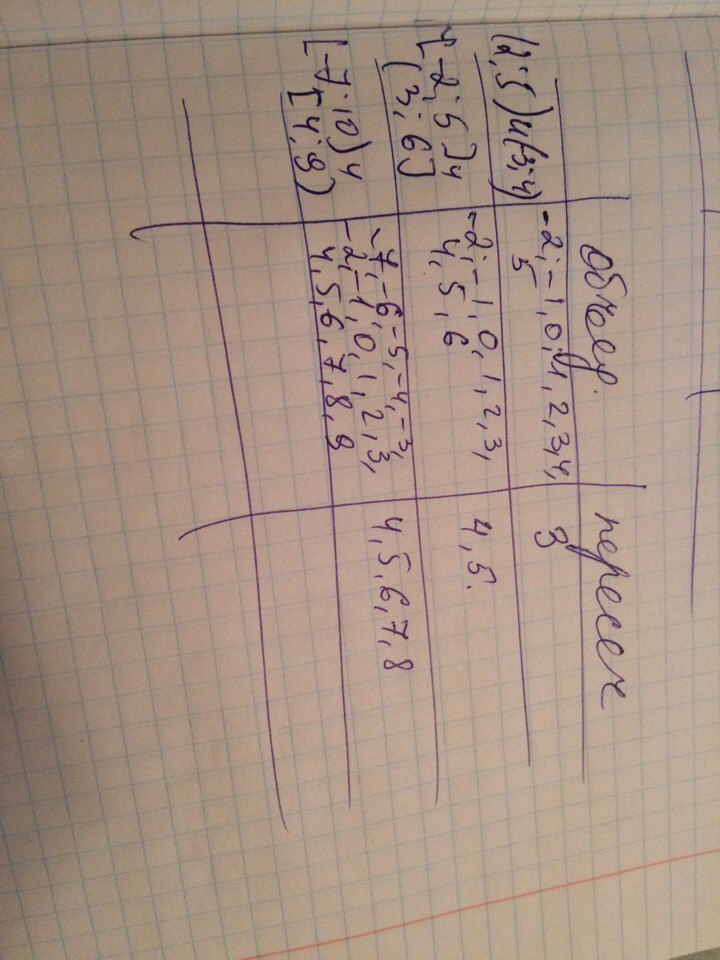 объед. пересеч
(2; 5) и (3; 4) -2; -1, 0, 1, 2, 3, 4, 3
5
[-2; 5] и -2; -1, 0, 1, 2, 3, 4, 5.
(3; 6] 4, 5, 6
[-7; 10) и -7, -6, -5, -4, -3, 4, 5, 6, 7, 8
[4; 9) -2, -1, 0, 1, 2, 3,
4, 5, 6, 7, 8, 9